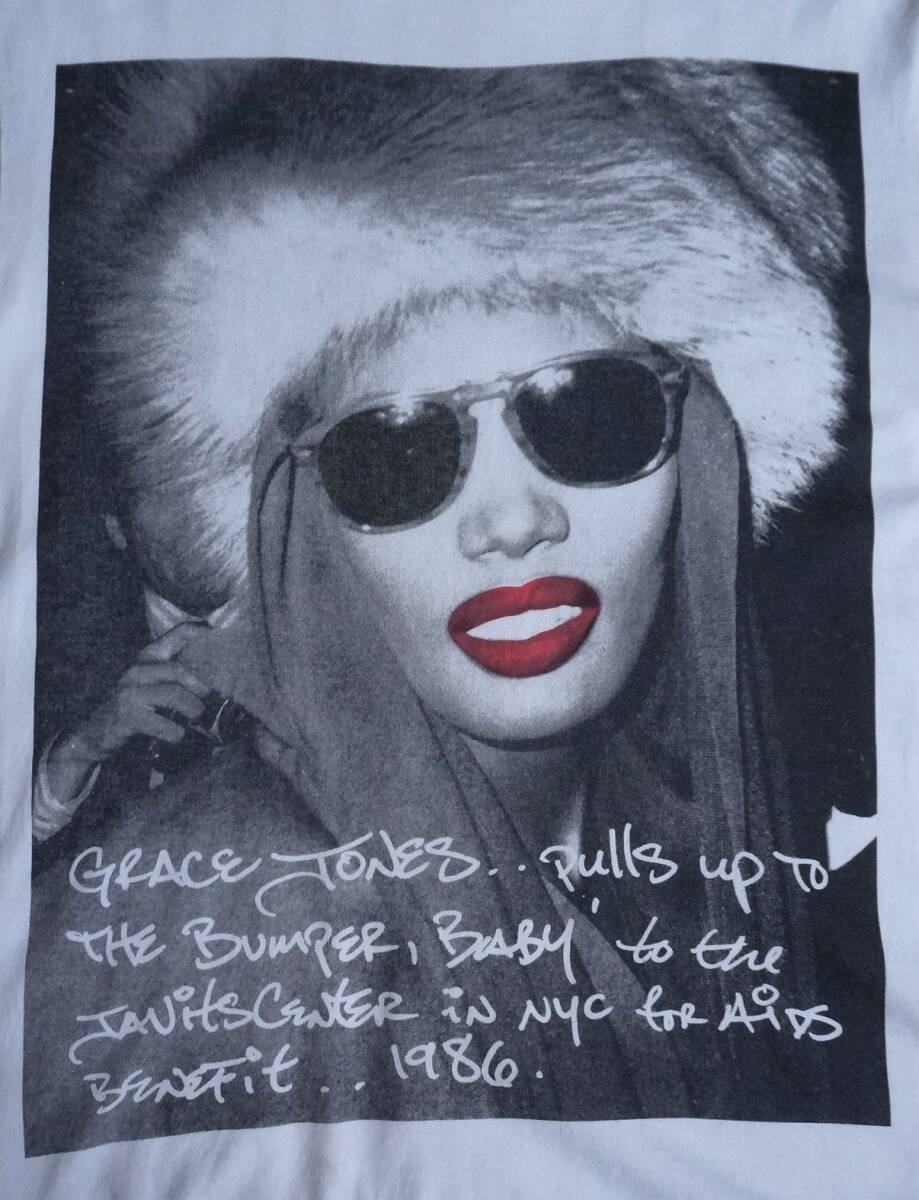 GRACE JONES.. pulls up TO
THE BUMPER, BABY' to the
JAVITS CENTER in NYC for AiDS
BENEFit... 1986.